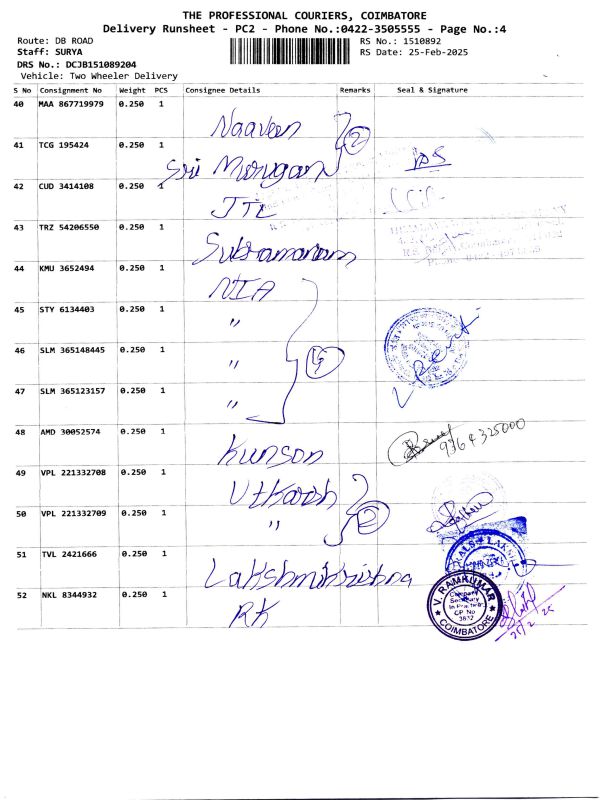 THE PROFESSIONAL COURIERS, COIMBATORE
Delivery Runsheet - PC2 - Phone No.:0422-3505555 - Page No.:4
Route: DB ROAD
RS No.: 1510892
Staff: SURYA
RS Date: 25-Feb-2025
DRS No.: DCJB151089204
Vehicle: Two Wheeler Delivery
S No Consignment No Weight PCS Consignee Details Remarks Seal & Signature
40 MAA 867719979 0.250 1 Naaveen
41 TCG 195424 0.250 1 Sri Morugan 2
42 CUD 3414108 0.250 1 JTL
43 TRZ 54206550 0.250 1 Subramaniam
44 KMU 3652494 0.250 1 NIA
45 STY 6134403 0.250 1 "
46 SLM 365148445 0.250 1 "
47 SLM 365123157 0.250 1 "
48 AMD 30052574 0.250 1 Kunson 9364325000
49 VPL 221332708 0.250 1 Utkarsh
50 VPL 221332709 0.250 1 " 2
51 TVL 2421666 0.250 1 Lakshmikrishna
52 NKL 8344932 0.250 1 RK
V. RAMKUMAR
Company
Secretary
In Practice
CP No
3832
COIMBATORE
25/2/25